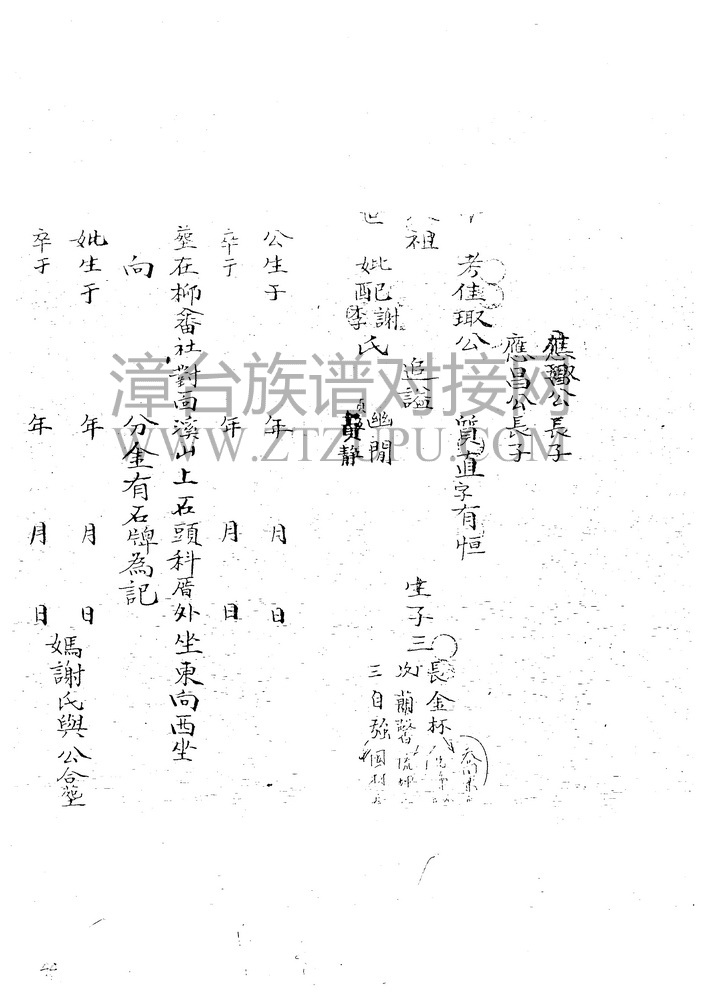 應興公長子
應昌公長子
考佳珋公 質直字有恒
祖 追諡 生子三
妣配謝氏 幽閒
李 貞靜
世
長金杯
次蘭馨
三自強
公生于 年 月 日
卒于 年 月 日
塟在柳畨社對面溪山上石頭科厝外坐東向西坐
向 分金有石牌為記
妣生于 年 月 日
卒于 年 月 日
媽謝氏與公合塟
漳台族谱对接网
WWW.ZTZUPU.COM